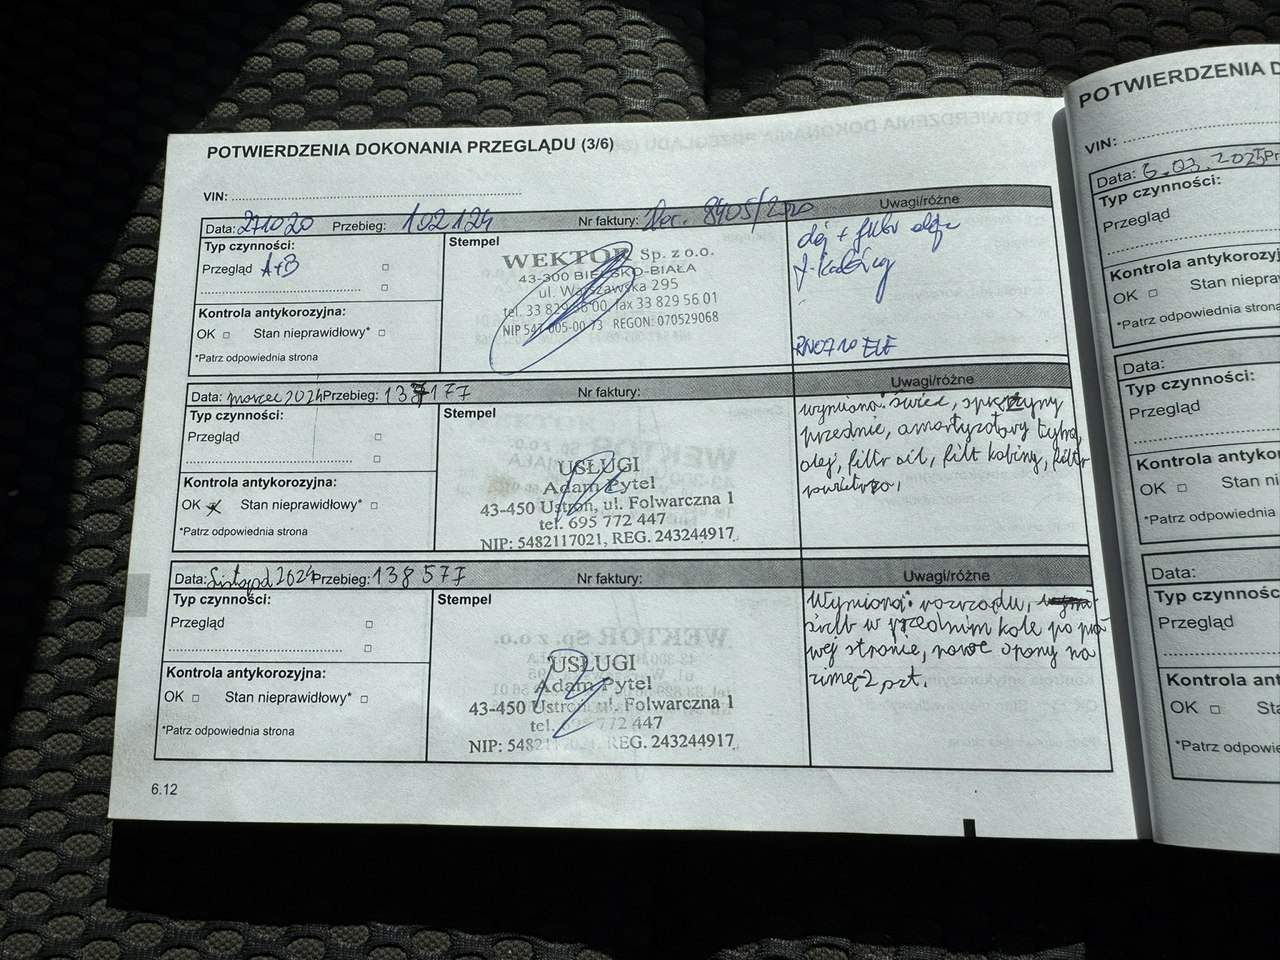 POTWIERDZENIA DOKONANIA PRZEGLĄDU (3/6)
VIN:
Data: 271020 Przebieg: 102124 Nr faktury: 8405/2020 Uwagi/różne
Typ czynności:
Przegląd A+B
Kontrola antykorozyjna:
OK Stan nieprawidłowy*
*Patrz odpowiednia strona
Stempel
WEKTOR Sp. z o.o.
43-300 BIELSKO-BIAŁA
ul. Warszawska 295
tel. 33 829 00, fax 33 829 56 01
NIP 547-005-00-73 REGON: 070529068
olej + filtr
f-kabiny
RN0710 ELF
Data: marzec 2024 Przebieg: 137177 Nr faktury: Uwagi/różne
Typ czynności:
Przegląd
Kontrola antykorozyjna:
OK x Stan nieprawidłowy*
*Patrz odpowiednia strona
Stempel
USŁUGI
Adam Pytel
43-450 Ustroń, ul. Folwarczna 1
tel. 695 772 447
NIP: 5482117021, REG. 243244917
wymiana: świec, sprężyny
przednie, amortyzatory
olej, filtr oil, filt kabiny, filtr
powietrza,
Data: Listopad 2024 Przebieg: 138577 Nr faktury: Uwagi/różne
Typ czynności:
Przegląd
Kontrola antykorozyjna:
OK Stan nieprawidłowy*
*Patrz odpowiednia strona
Stempel
USŁUGI
Adam Pytel
43-450 Ustroń, ul. Folwarczna 1
tel. 695 772 447
NIP: 5482117021, REG. 243244917
Wymiana: rozrządu,
śrub w przednim kole po pra-
wej stronie, nowe opony na
zimę-2 szt.
6.12
POTWIERDZENIA D
VIN:
Data: 6.03.2025 Pr
Typ czynności:
Przegląd
Kontrola antykorozyj
OK Stan niepra
*Patrz odpowiednia stron
Data:
Typ czynności:
Przegląd
Kontrola antykoro
OK Stan ni
*Patrz odpowiednia
Data:
Typ czynnośc
Przegląd
Kontrola ant
OK Sta
*Patrz odpowie